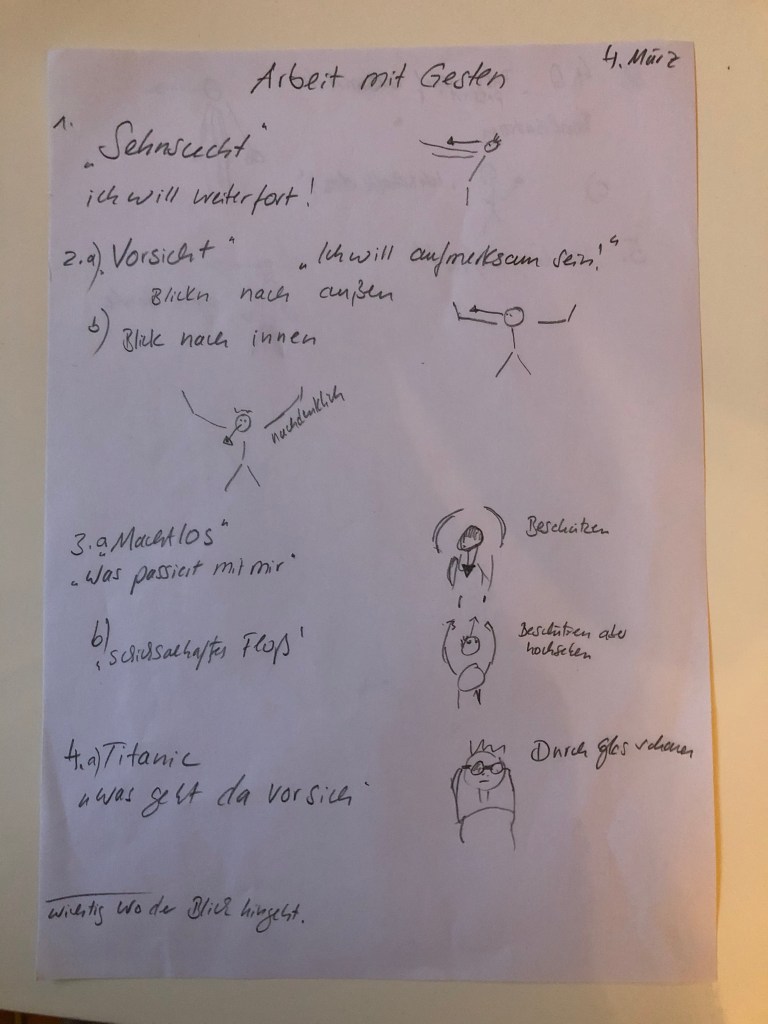 4. März
Arbeit mit Gesten
1.
„Sehnsucht"
ich will weiter fort!
2.a) „Vorsicht" „Ich will aufmerksam sein!"
Blickn nach außen
b) Blick nach innen
nachdenklich
3.a „Machtlos" Beschützen
„Was passiert mit mir"
b) Beschützen aber
hochsehen
„schicksalhaftes Floß"
4.a) Titanic Durch Glas schauen
„was geht da vor sich"
wichtig wo der Blick hingeht.